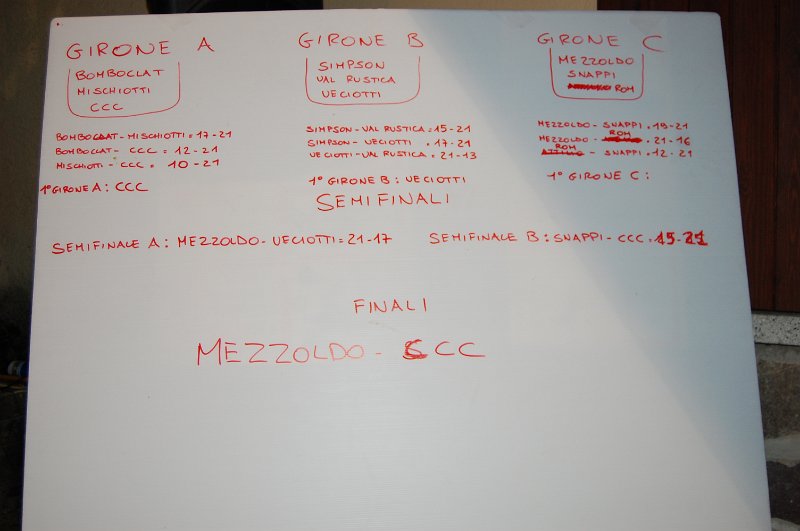 GIRONE A
BOMBOCLAT
MISCHIOTTI
CCC
BOMBOCLAT - MISCHIOTTI = 17-21
BOMBOCLAT - CCC = 12-21
MISCHIOTTI - CCC = 10-21
1° GIRONE A : CCC
GIRONE B
SIMPSON
VAL RUSTICA
VECIOTTI
SIMPSON - VAL RUSTICA = 15-21
SIMPSON - VECIOTTI = 17-21
VECIOTTI - VAL RUSTICA = 21-13
1° GIRONE B : VECIOTTI
GIRONE C
MEZZOLDO
SNAPPI
ROM
MEZZOLDO - SNAPPI = 19-21
MEZZOLDO - ROM = 21-16
ROM - SNAPPI = 12-21
1° GIRONE C :
SEMIFINALI
SEMIFINALE A : MEZZOLDO - VECIOTTI = 21-17
SEMIFINALE B : SNAPPI - CCC = 15-21
FINALI
MEZZOLDO - CCC